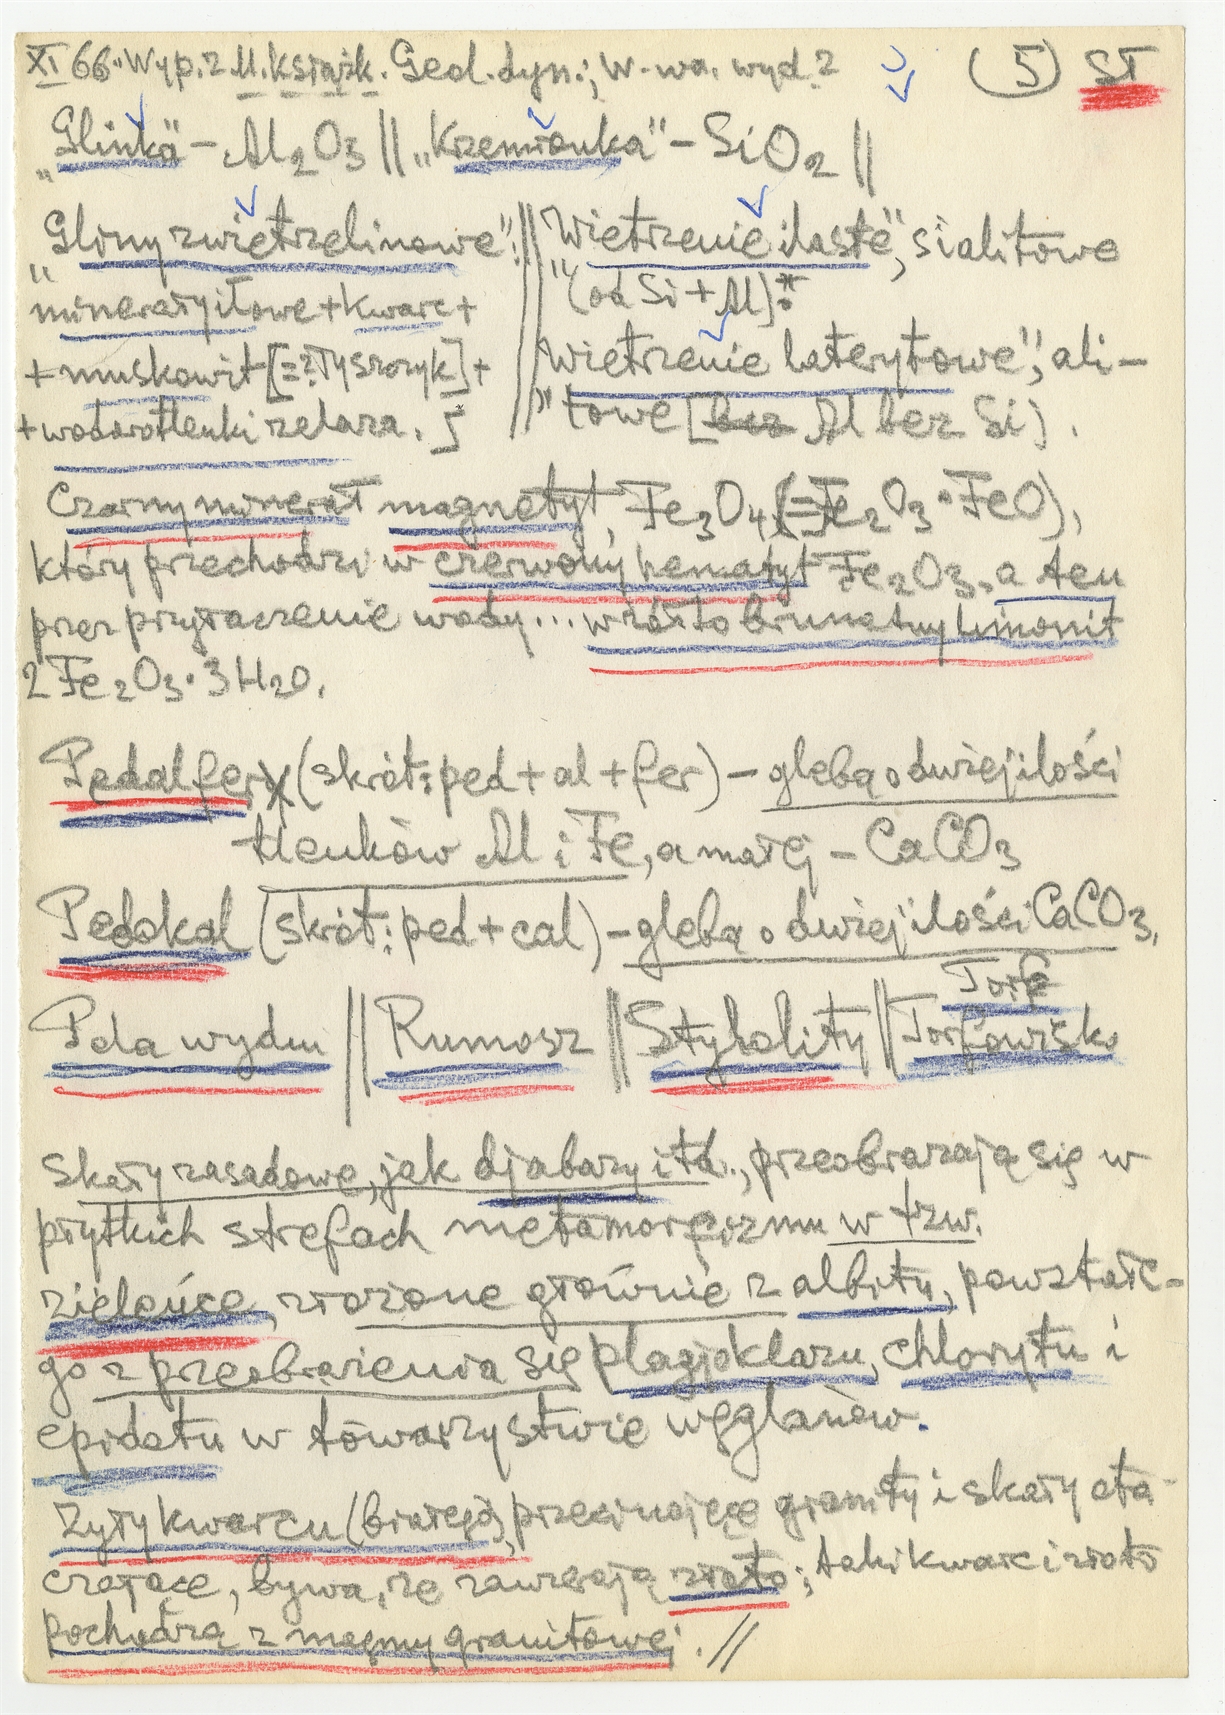 XI 66. Wyp. z M. książk. Geol. dyn.; W-wa. wyd. 2 (5) ST
„Glinka” – Al2O3 || „Krzemionka” – SiO2 ||
„Gliny zwietrzelinowe”:
minerały iłowe + kwarc +
+ muskowit [=? Łyszczyk] +
+ wodorotlenki żelaza.
„Wietrzenie ilaste”, sialitowe
(od Si + Al).
„Wietrzenie laterytowe”, ali-
towe [bez Al bez Si].
Czarny minerał magnetyt, Fe3O4 (=Fe2O3 · FeO),
który przechodzi w czerwony hematyt Fe2O3, a ten
przez przyłączenie wody... w żółto brunatny limonit
2Fe2O3 · 3H2O.
Pedalfer (skrót: ped + al + fer) – gleba o dużej ilości
tlenków Al i Fe, a małej – CaCO3
Pedokal (skrót: ped + cal) – gleba o dużej ilości CaCO3,
Torf
Pola wydm || Rumosz || Stylolity || Torfowisko
Skały zasadowe, jak djabazy itd., przeobrażają się w
płytkich strefach metamorfizmu w tzw.
zieleńce, złożone głównie z albitu, powstałe-
go z przeobrażenia się plagjoklazu, chlorytu i
epidotu w towarzystwie węglanów.
Żyły kwarcu (białego), przecinające granity i skały ota-
czające, bywa, że zawierają złoto; taki kwarc i złoto
pochodzą z magmy granitowej. //